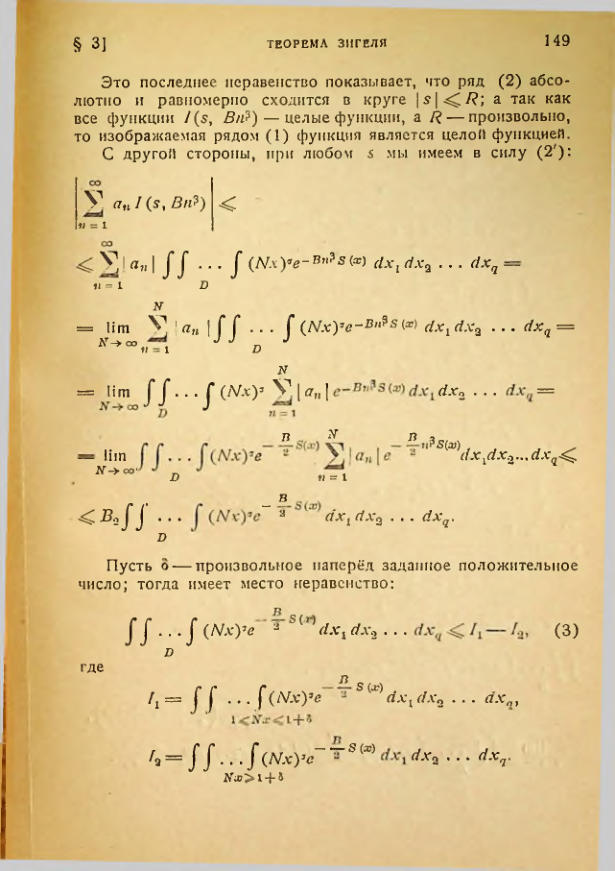 § 3] ТЕОРЕМА ЗИГЕЛЯ 149
Это последнее неравенство показывает, что ряд (2) абсо-
лютно и равномерно сходится в круге |s| ⩽ R; а так как
все функции I (s, Bn³) — целые функции, а R — произвольно,
то изображаемая рядом (1) функция является целой функцией.
С другой стороны, при любом s мы имеем в силу (2′):
| ∑_{n = 1}^{∞} aₙ I (s, Bn³) | ⩽
⩽ ∑_{n = 1}^{∞} | aₙ | ∫∫ ... ∫_D (Nx)^σ e^{−Bn³S (x)} dx₁ dx₂ ... dx_q =
= lim_{N→∞} ∑_{n = 1}^{N} | aₙ | ∫∫ ... ∫_D (Nx)^σ e^{−Bn³S (x)} dx₁ dx₂ ... dx_q =
= lim_{N→∞} ∫∫ ... ∫_D (Nx)^σ ∑_{n = 1}^{N} | aₙ | e^{−Bn³S (x)} dx₁ dx₂ ... dx_q =
= lim_{N→∞} ∫∫ ... ∫_D (Nx)^σ e^{−B/2 S(x)} ∑_{n = 1}^{N} | aₙ | e^{−B/2 n³S(x)} dx₁dx₂...dx_q ⩽
⩽ B₂ ∫∫ ... ∫_D (Nx)^σ e^{−B/2 S (x)} dx₁ dx₂ ... dx_q.
Пусть δ — произвольное наперёд заданное положительное
число; тогда имеет место неравенство:
∫∫ ... ∫_D (Nx)^σ e^{−B/2 S (x)} dx₁ dx₂ ... dx_q ⩽ I₁ — I₂, (3)
где
I₁ = ∫∫ ... ∫_{1⩽Nx⩽1+δ} (Nx)^σ e^{−B/2 S (x)} dx₁ dx₂ ... dx_q,
I₂ = ∫∫ ... ∫_{Nx⩾1+δ} (Nx)^σ e^{−B/2 S (x)} dx₁ dx₂ ... dx_q.